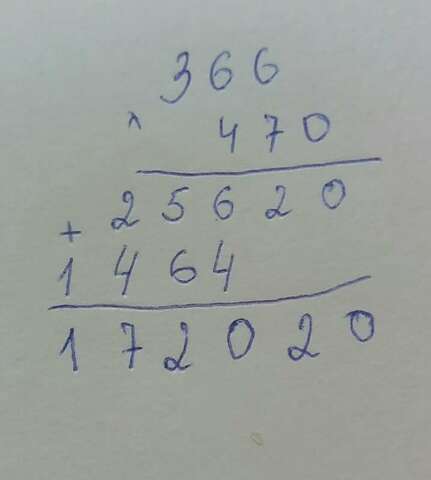 366
× 470
25620
+
1464
172020